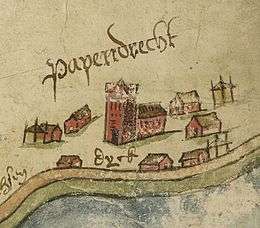 papendrecht
Dyck